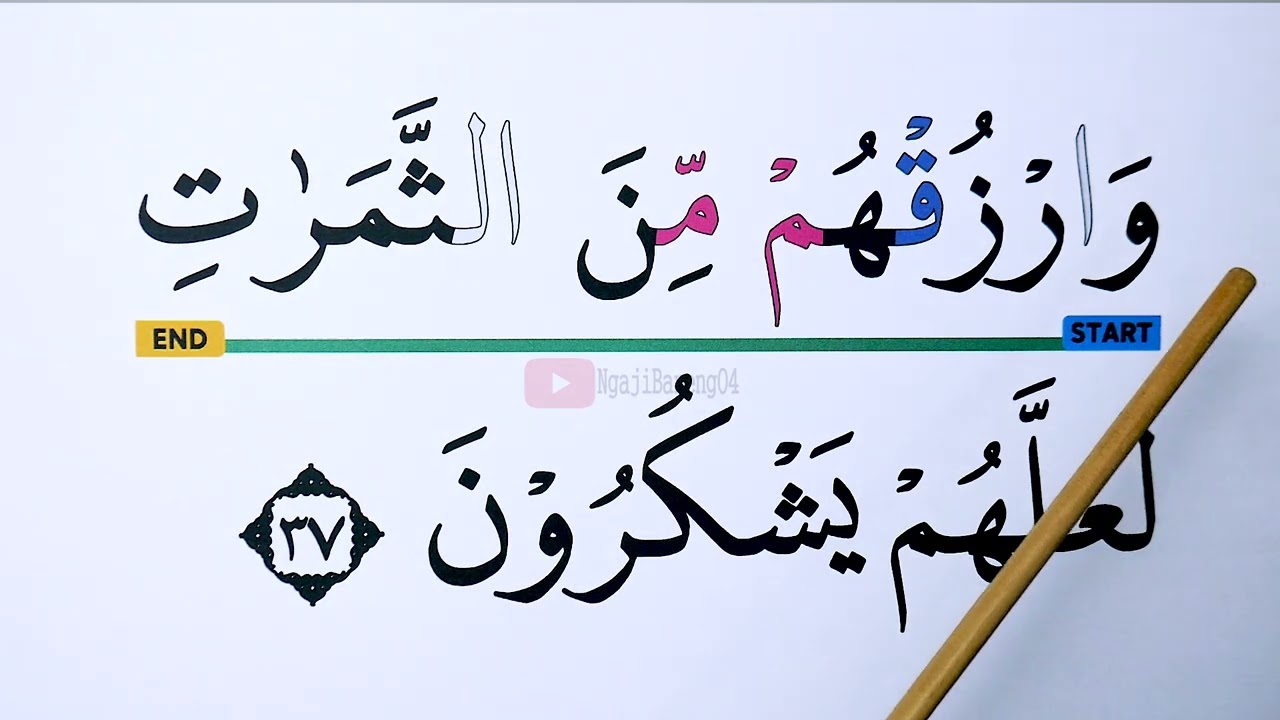 وَارْزُقْهُمْ مِّنَ الثَّمَرٰتِ
END START
NgajiBareng04
لَعَلَّهُمْ يَشْكُرُوْنَ ٣٧